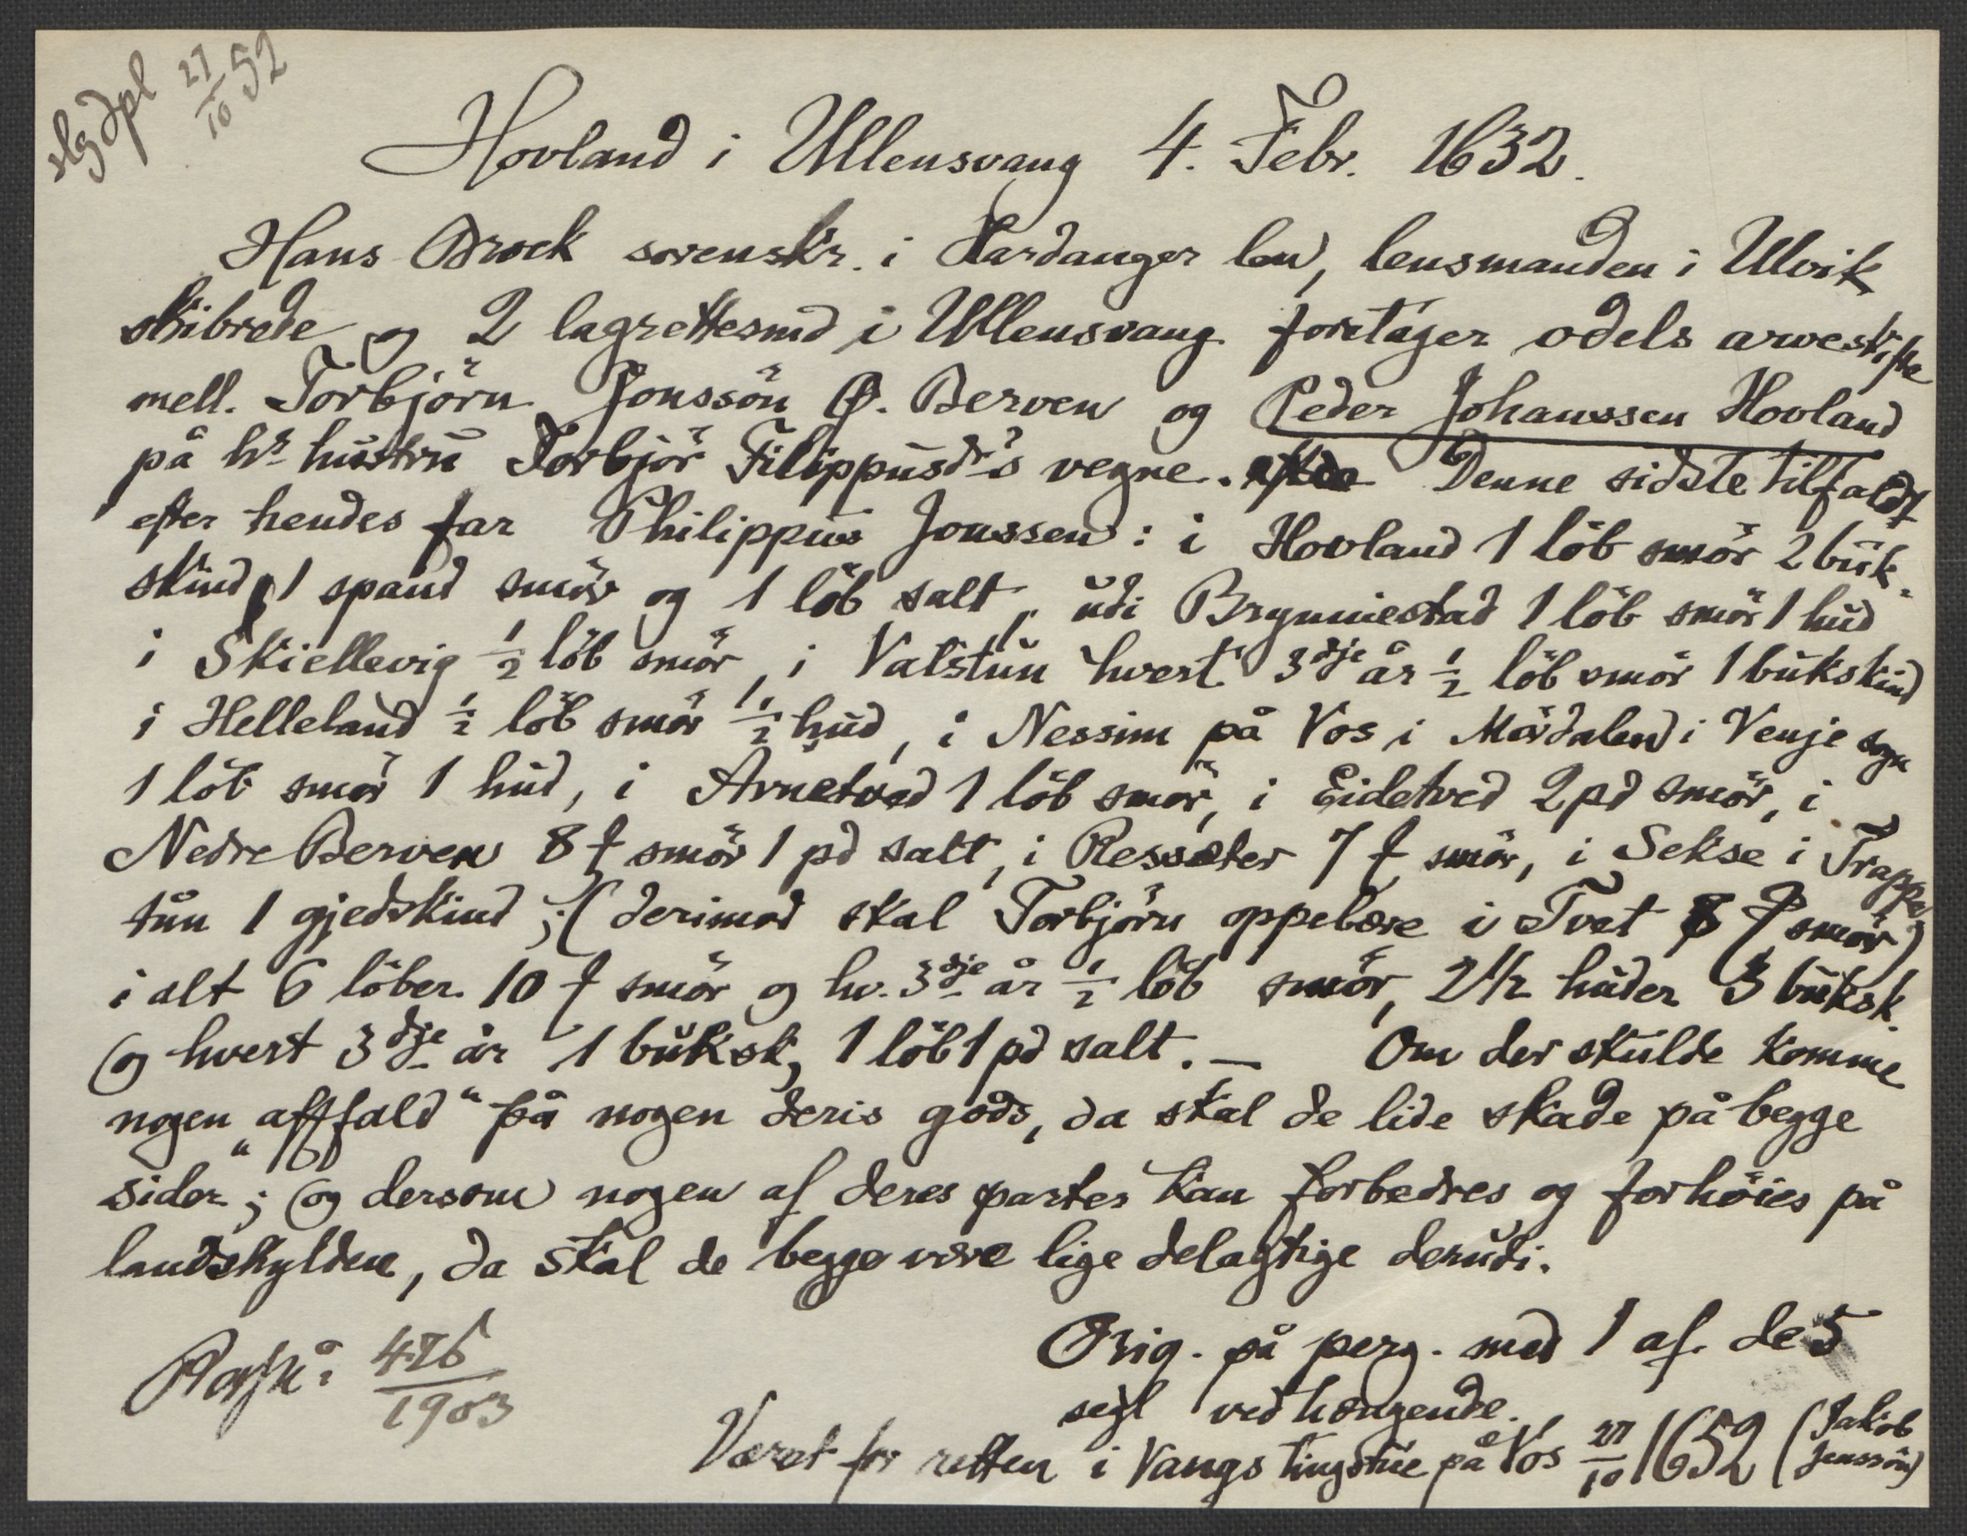 slg dpl 27/10 52
Hovland i Ullensvang 4. Febr. 1632.
Hans Brock sorenskr. i Hardanger len, lensmanden i Ulvik
skibrede og 2 lagrettesmd i Ullensvang foretager odels arveskifte
mell. Torbjörn Jonssön Ø. Berven og Peder Johanssen Hovland
på hs hustru Torbjör Filippusdrs vegne. Denne sidste tilfaldt
efter hendes far Philippus Jonssen: i Hovland 1 löb smör 2 buk-
skind, 1 spand smör og 1 löb salt, udi Brynniestad 1 löb smör 1 hud
i Skiellevig 1/2 löb smör, i Vatstun hvert 3dje år 1/2 löb smör 1 bukskind
i Helleland 1/2 löb smör 1/2 hud, i Nessim på Vos i Mördalen i Venje sogn
1 löb smör 1 hud, i Arnetved 1 löb smör, i Eidetved 2 pd smör, i
Nedre Berven 8 ₰ smör 1 pd salt, i Ressæter 7 ₰ smör, i Sekse i Trappe
tun 1 gjedskind; (derimod skal Torbjörn oppebære i Tvet 8 ₰ smör)
i alt 6 löber 10 ₰ smör og hv. 3dje år 1/2 löb smör, 2 1/2 huder 3 buksk.
og hvert 3dje år 1 buksk, 1 löb 1 pd salt. — Om der skulde komme
nogen „affald“ på nogen deris gods, da skal de lide skade på begge
sider; og dersom nogen af deres parter kan forbedres og forhöies på
landskylden, da skal de begge være lige delagtige derudi.
Orig. på perg. med 1 af de 5
segl vedhængende.
426/1903
Været for retten i Vangs tingstue på Vos 27/10 1652 (Jakob
Jenssön)